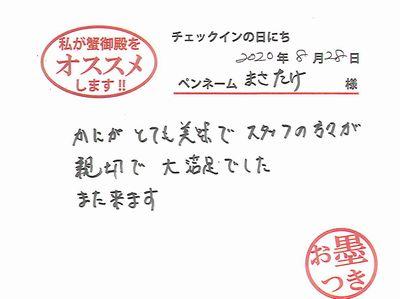 私が蟹御殿を
オススメ
します!!
チェックインの日にち
2020年8月28日
ペンネーム まさたけ 様
かにが とても美味で スタッフの方々が
親切で 大満足でした
また来ます
お墨
つき